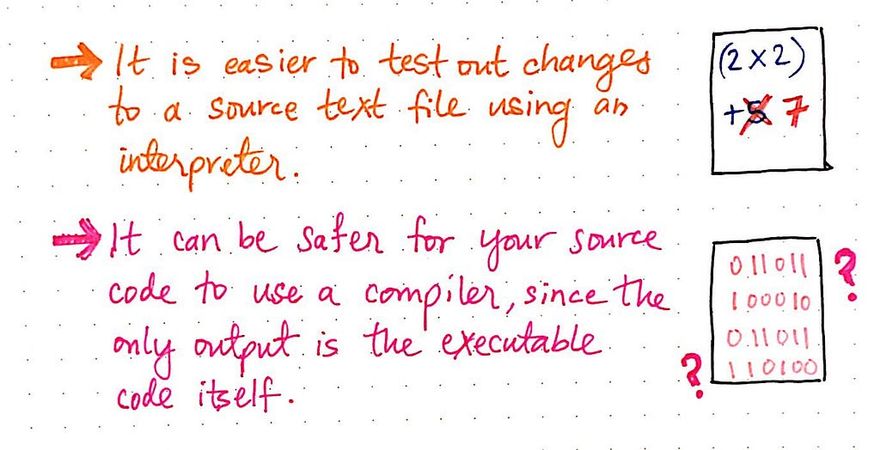 → It is easier to test out changes
to a source text file using an
interpreter.
(2 × 2)
+5 7
→ It can be safer for your source
code to use a compiler, since the
only output is the executable
code itself.
011011 ?
100010
011011
? 110100